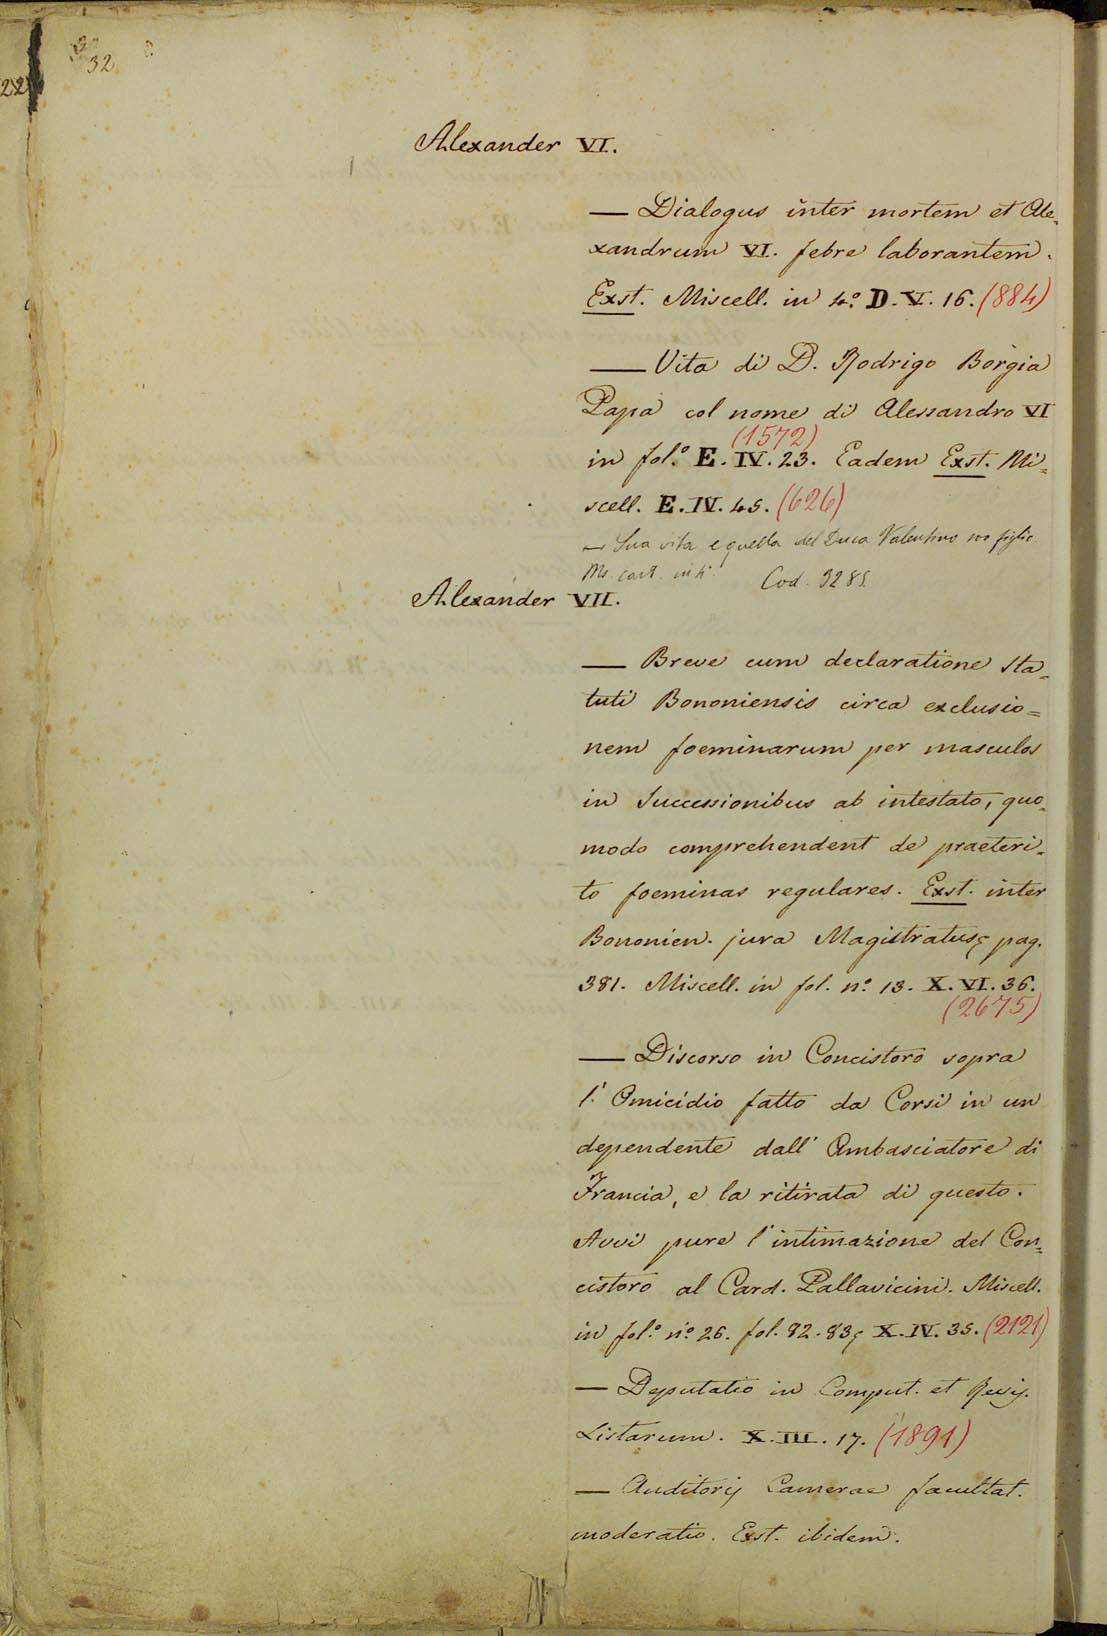 32
22
Alexander VI.
— Dialogus inter mortem et Ale-
xandrum VI. febre laborantem.
Exst. Miscell. in 4.° D. V. 16. (884)
— Vita di D. Rodrigo Borgia
Papa col nome di Alessandro VI
(1572)
in fol.° E. IV. 23. Eadem Exst. Mi=
scell. E. IV. 45. (626)
— Sua vita e quella del Duca Valentino suo figlio
Ms. cart. in 4°. Cod. 3285
Alexander VII.
— Breve cum declaratione sta-
tuti Bononiensis circa exclusio=
nem foeminarum per masculos
in successionibus ab intestato, quo-
modo comprehendent de praeteri-
to foeminas regulares. Exst. inter
Bononien. jura Magistratus; pag.
381. Miscell. in fol. n.° 13. X. VI. 36.
(2675)
— Discorso in Concistoro sopra
l'Omicidio fatto da Corsi in un
dependente dall'Ambasciatore di
Francia, e la ritirata di questo.
Avvi pure l'intimazione del Con=
cistoro al Card. Pallavicini. Miscell.
in fol.° n.° 26. fol. 82. 83; X. IV. 35. (2121)
— Deputatio in Comput. et Revij.
Listarum. X. III. 17. (1891)
— Auditorij Camerae facultat.
moderatio. Exst. ibidem.